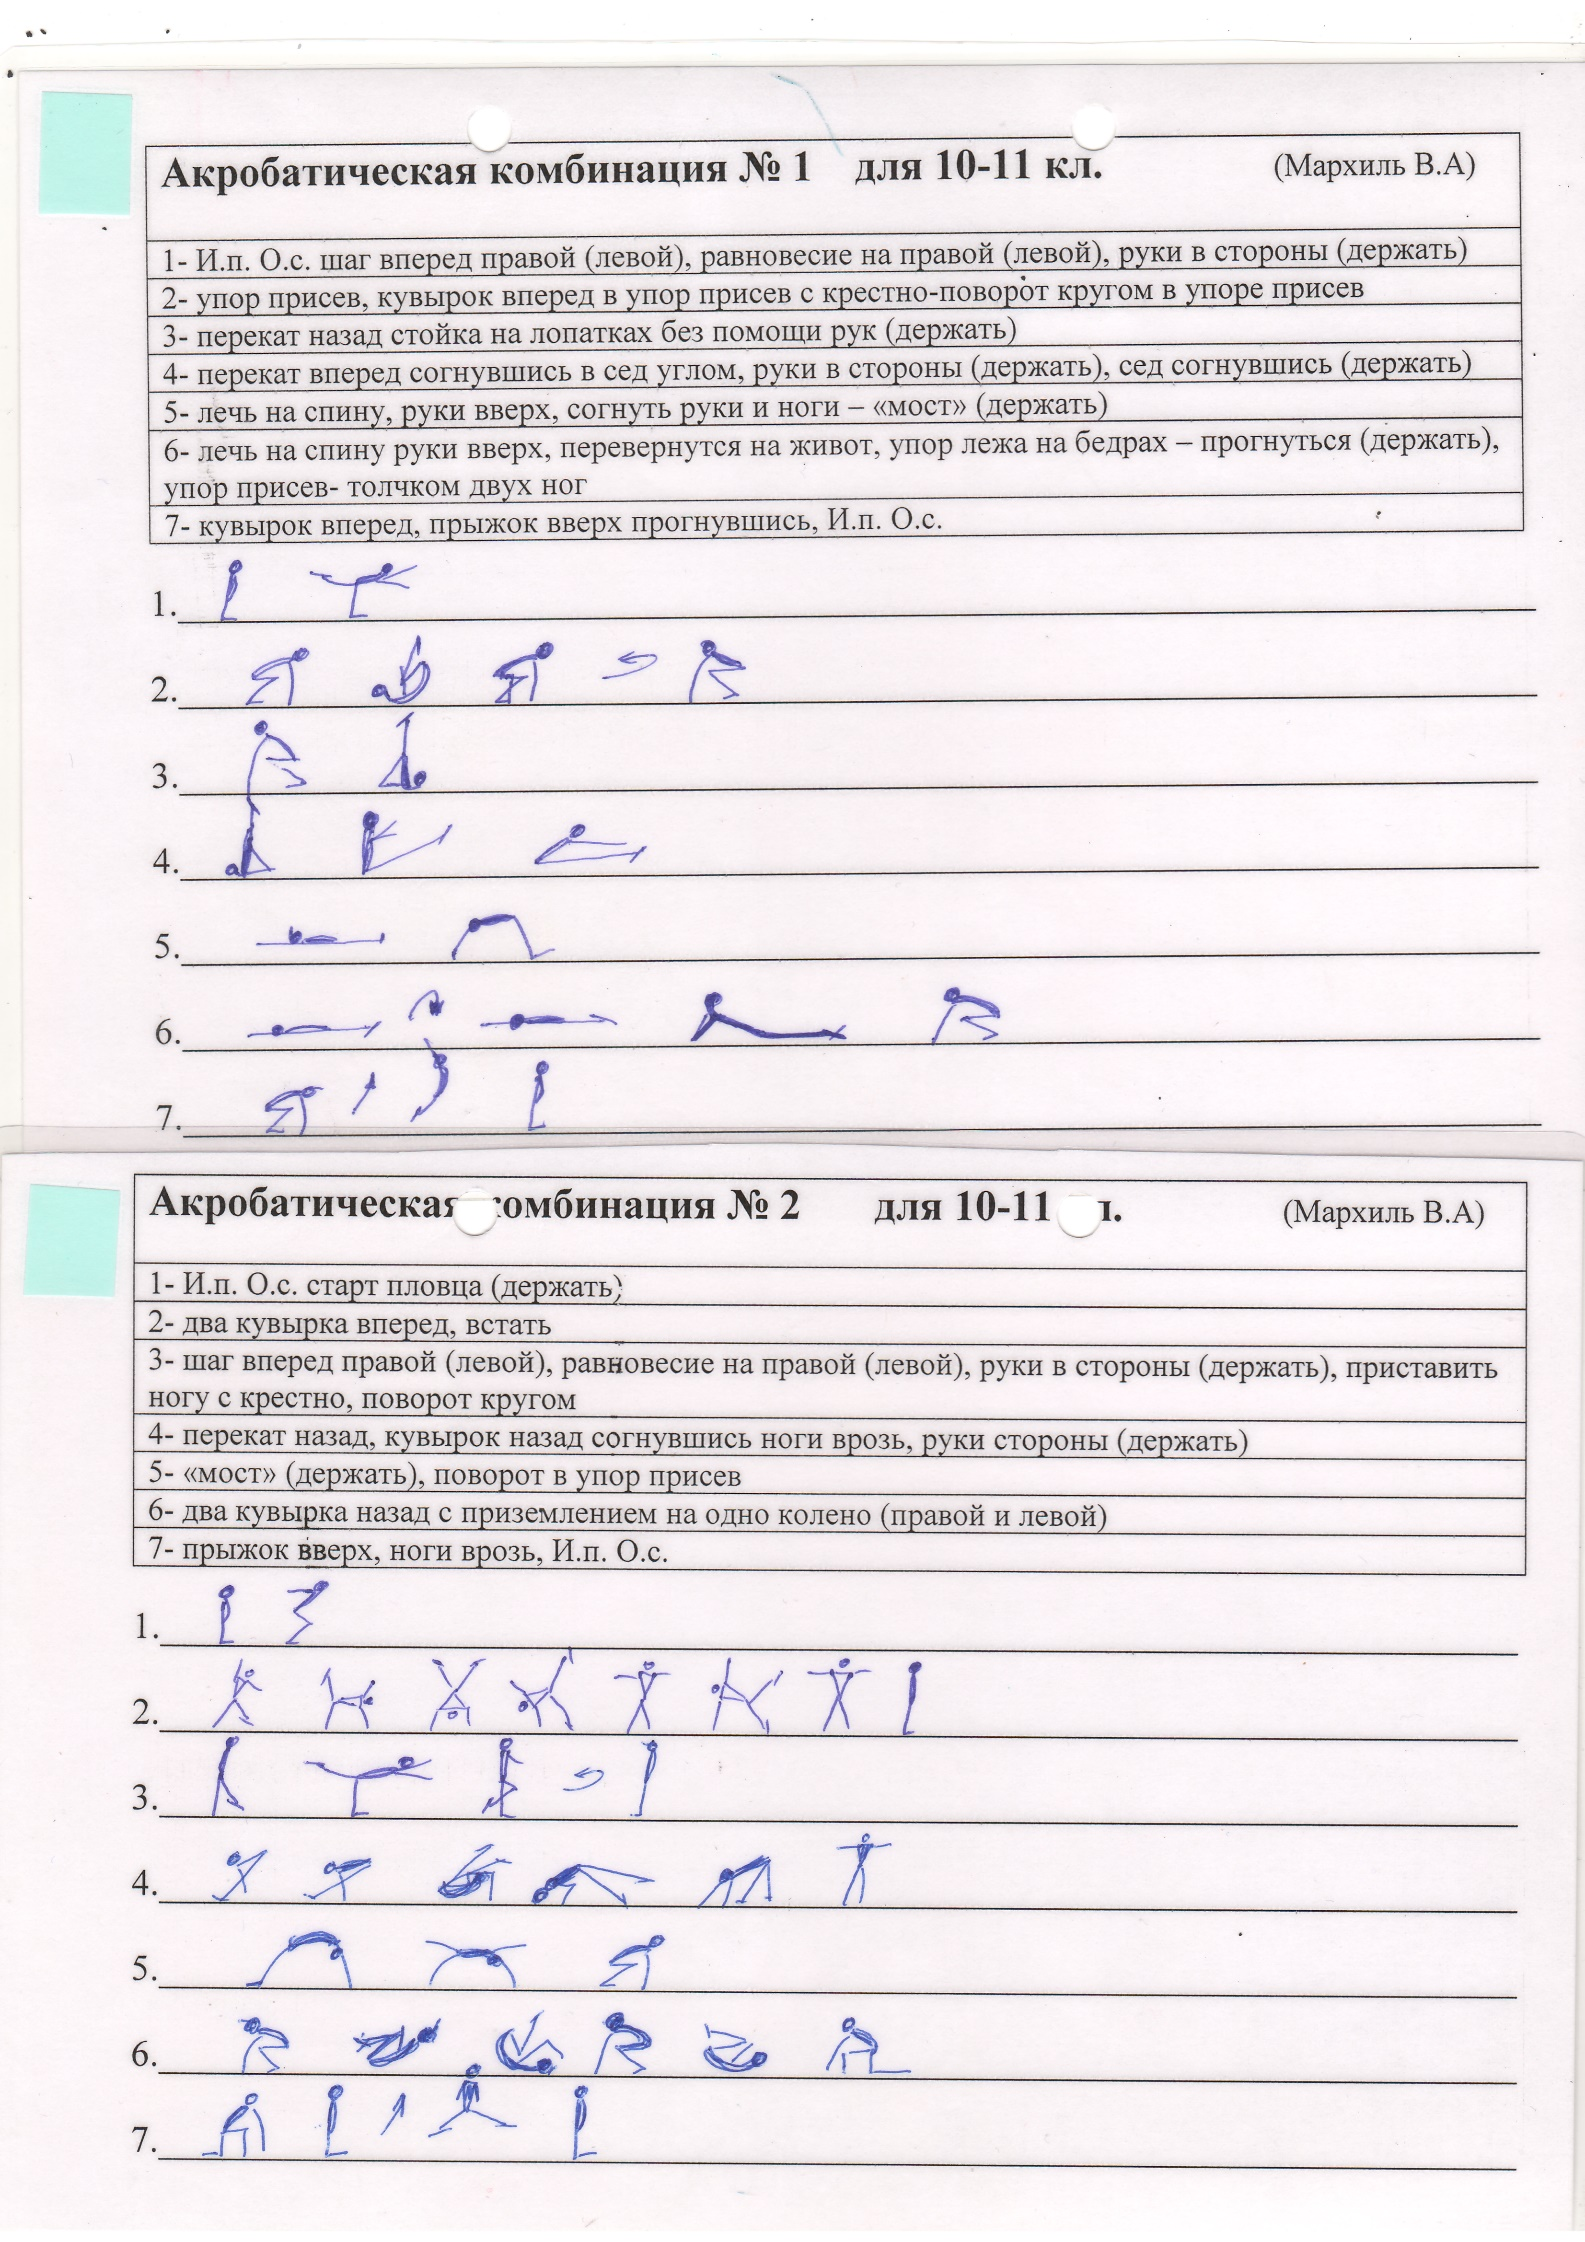 Акробатическая комбинация № 1 для 10-11 кл. (Мархиль В.А)
1- И.п. О.с. шаг вперед правой (левой), равновесие на правой (левой), руки в стороны (держать)
2- упор присев, кувырок вперед в упор присев с крестно-поворот кругом в упоре присев
3- перекат назад стойка на лопатках без помощи рук (держать)
4- перекат вперед согнувшись в сед углом, руки в стороны (держать), сед согнувшись (держать)
5- лечь на спину, руки вверх, согнуть руки и ноги – «мост» (держать)
6- лечь на спину руки вверх, перевернутся на живот, упор лежа на бедрах – прогнуться (держать),
упор присев- толчком двух ног
7- кувырок вперед, прыжок вверх прогнувшись, И.п. О.с.
1.
2.
3.
4.
5.
6.
7.
Акробатическая комбинация № 2 для 10-11 л. (Мархиль В.А)
1- И.п. О.с. старт пловца (держать)
2- два кувырка вперед, встать
3- шаг вперед правой (левой), равновесие на правой (левой), руки в стороны (держать), приставить
ногу с крестно, поворот кругом
4- перекат назад, кувырок назад согнувшись ноги врозь, руки стороны (держать)
5- «мост» (держать), поворот в упор присев
6- два кувырка назад с приземлением на одно колено (правой и левой)
7- прыжок вверх, ноги врозь, И.п. О.с.
1.
2.
3.
4.
5.
6.
7.